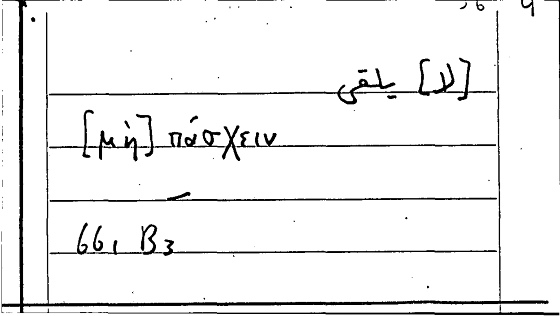 [لا] يلقى
[μὴ] πάσχειν
66, B3